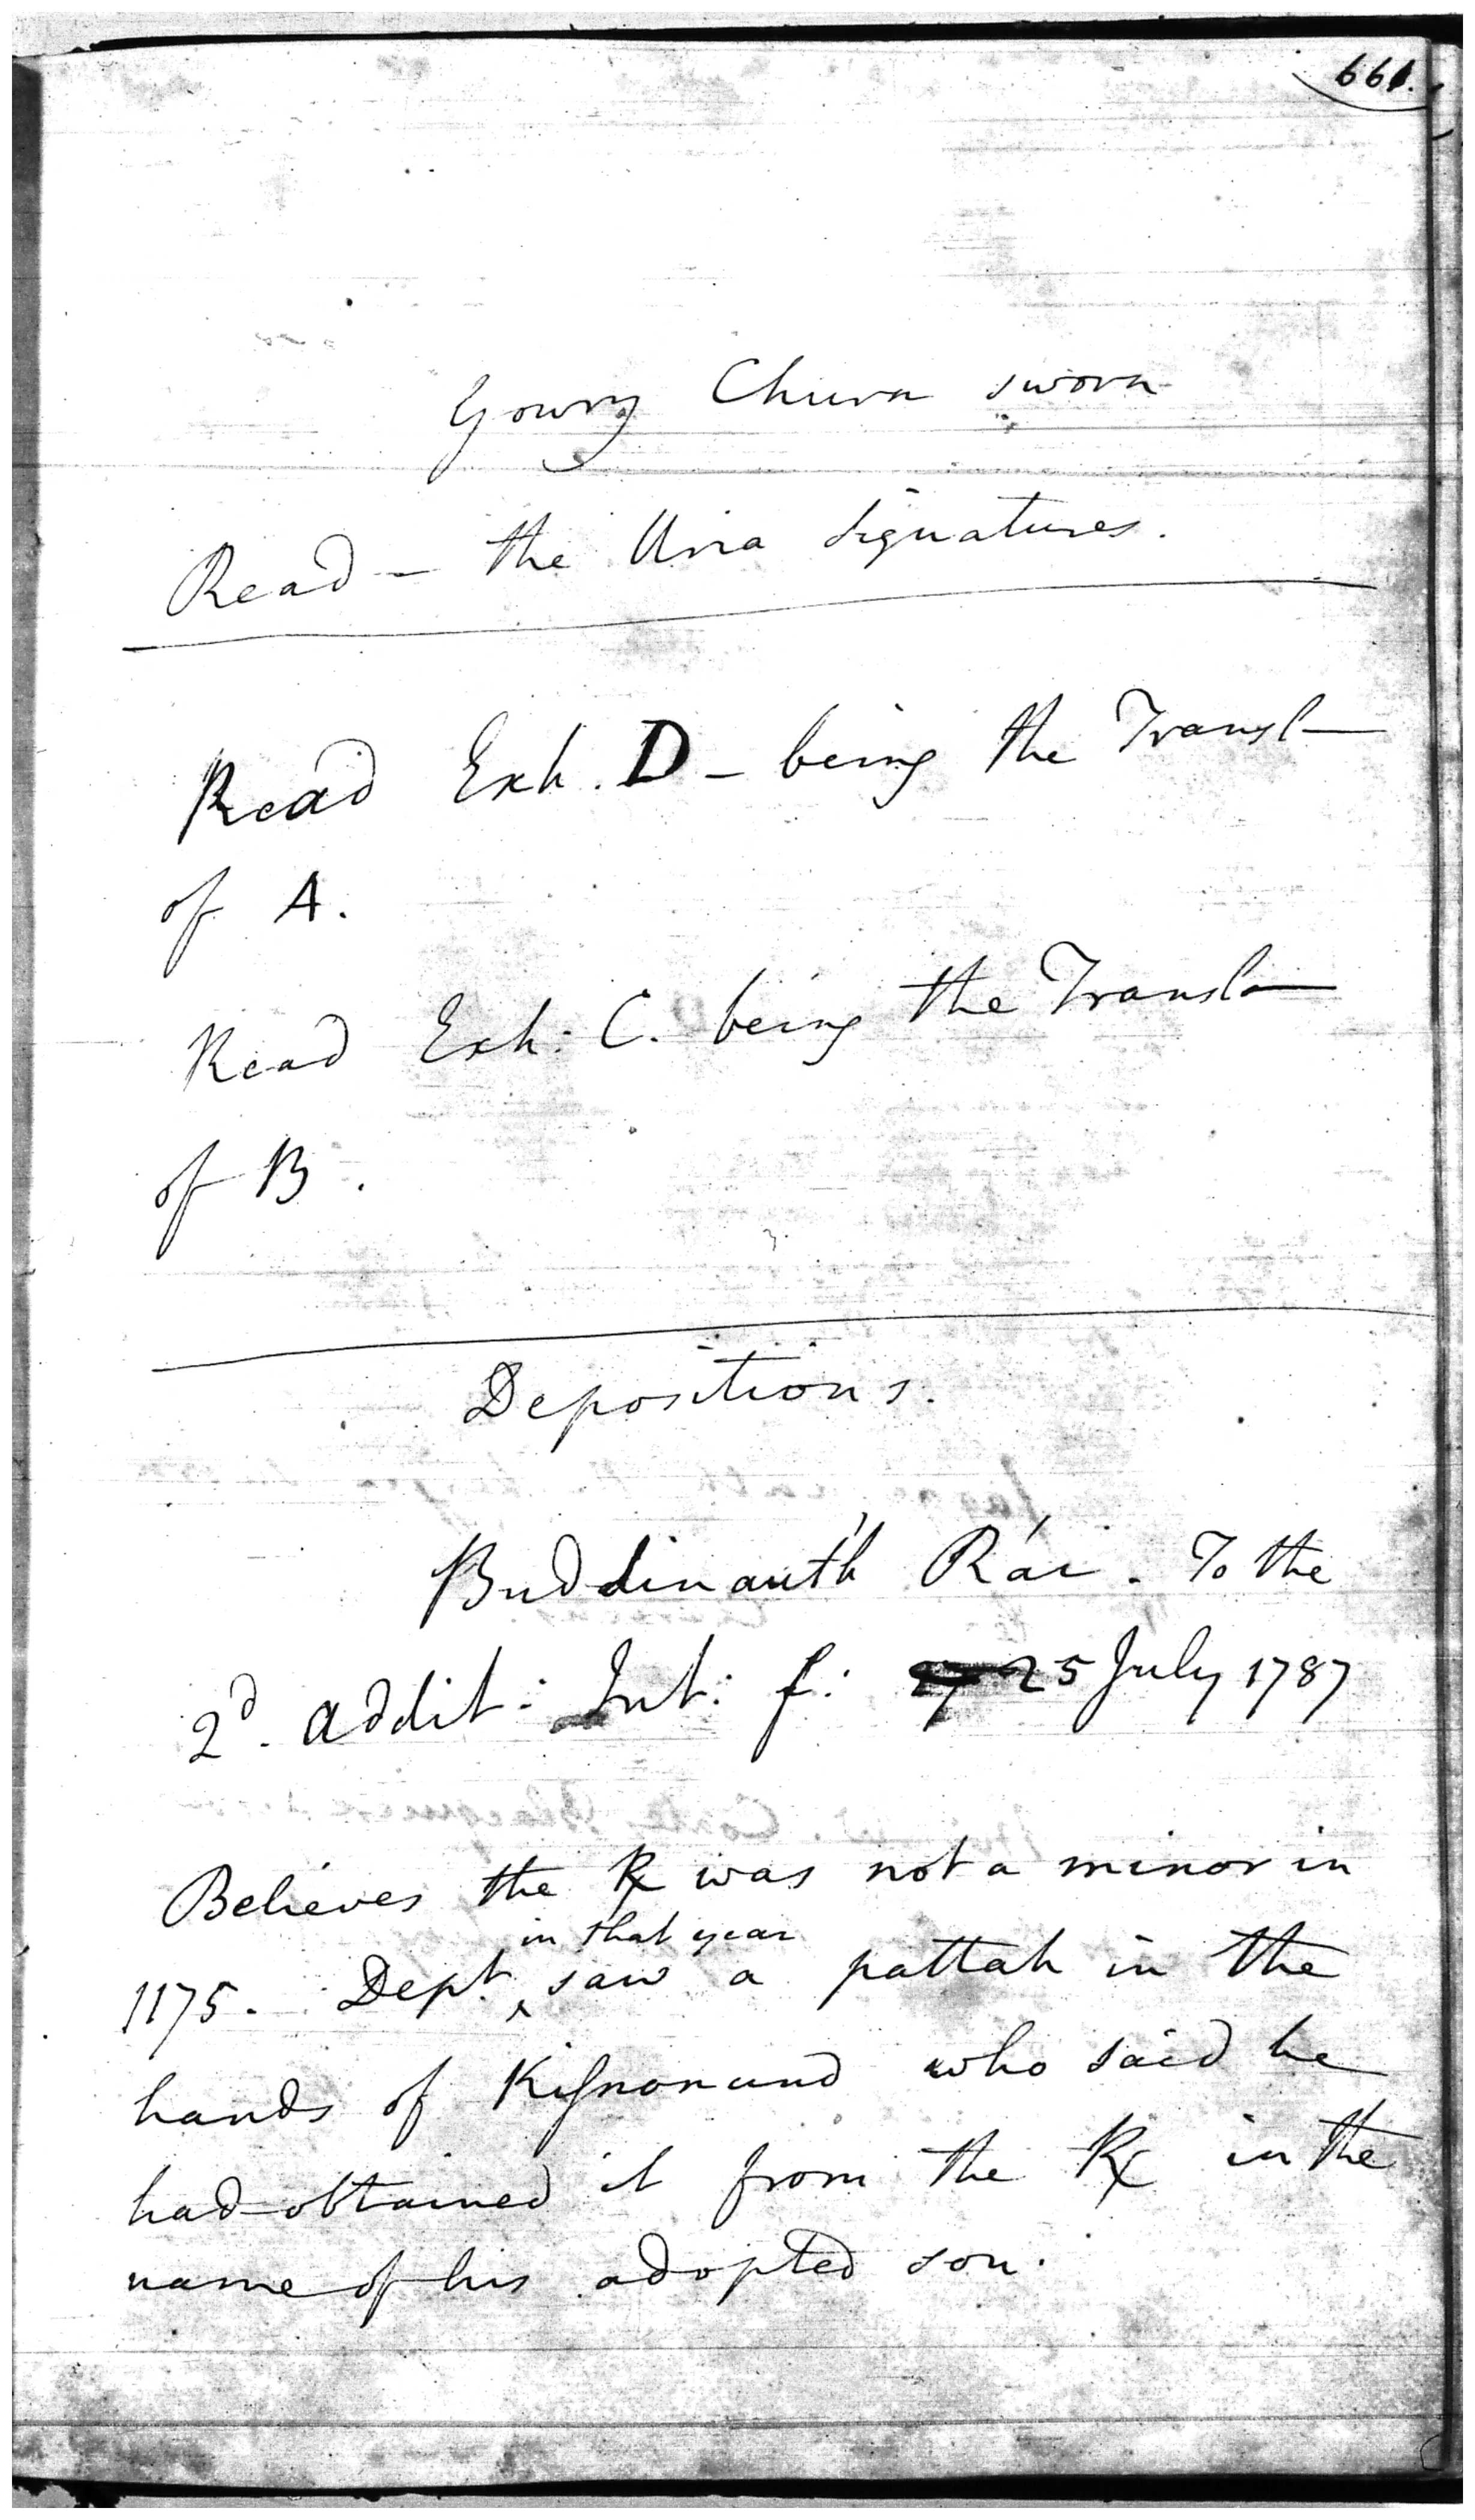 661.
Gowry Churn sworn
Read - the Uria signatures.
Read Exh. D - being the Transl-
of A.
Read Exh: C. being the Transl-
of B.
Depositions.
Buddinauth Rái. To the
2d. addit: Int: f: 25 July 1787
Believes the R was not a minor in
in that year
1175. Dept. ‸ saw a pattah in the
hands of Kisnonund who said he
had obtained it from the R in the
name of his adopted son.